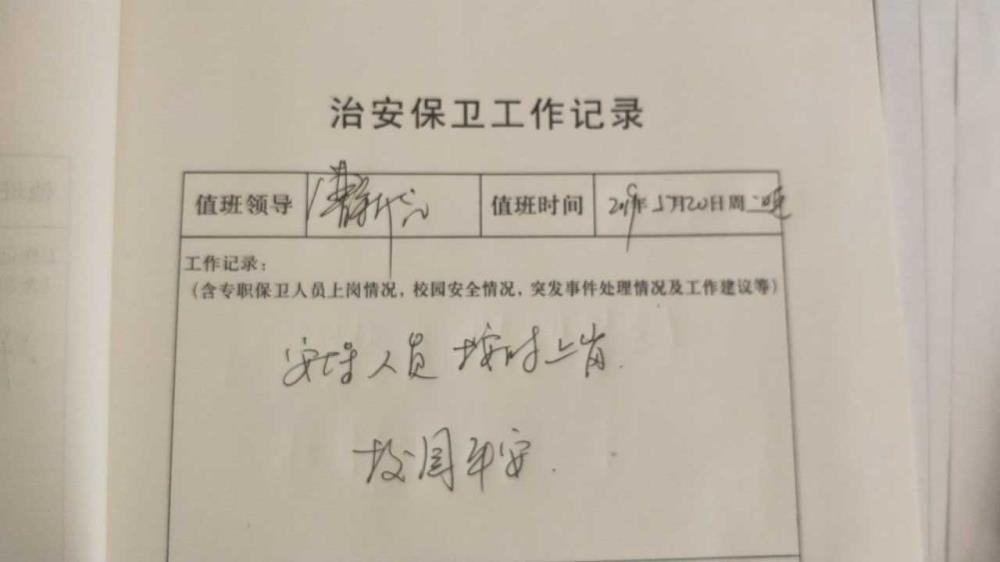 治安保卫工作记录
值班领导 值班时间 2019年5月20日周
工作记录：
（含专职保卫人员上岗情况，校园安全情况，突发事件处理情况及工作建议等）
安保人员按时上岗.
校园平安.